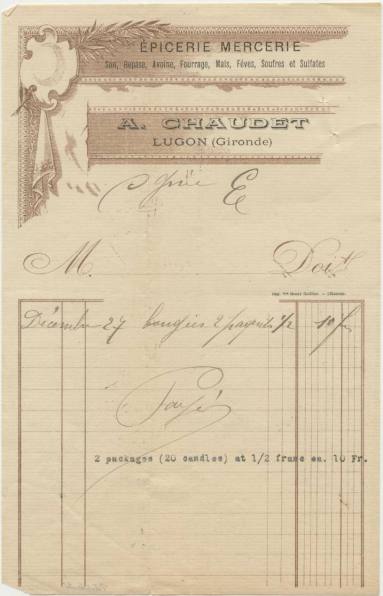 ÉPICERIE MERCERIE
Son, Repase, Avoine, Fourrage, Maïs, Fèves, Soufres et Sulfates
A. CHAUDET
LUGON (Gironde)
E
M. Doit
Décembre 27 bougies 2 paquets 1/2 10 f
Payé
2 packages (20 candles) at 1/2 franc ea. 10 Fr.